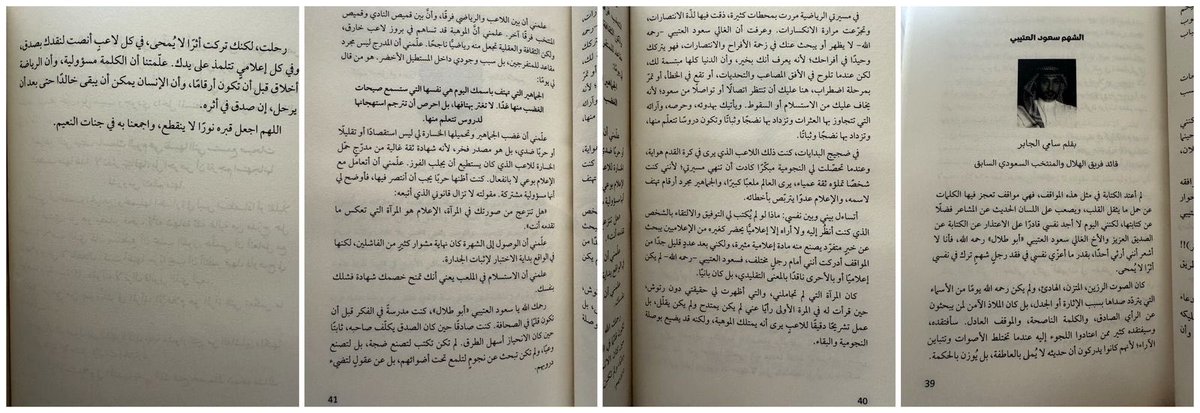 الشهم سعود العتيبي
بقلم سامي الجابر
قائد فريق الهلال والمنتخب السعودي السابق
لم أعتد الكتابة في مثل هذه المواقف، فهي مواقف تعجز فيها الكلمات
عن حمل ما يثقل القلب، ويصعب على اللسان الحديث عن المشاعر فضلًا
عن كتابتها، لكنني لا أجد نفسي قادرًا على الاعتذار عن الكتابة عن
الصديق العزيز والأخ الغالي سعود العتيبي «أبو طلال» رحمه الله، فأنا لا
أشعر أنني أرثي أحدًا، بقدر ما أعزّي نفسي في فقد رجل شهم ترك في نفسي
أثرًا لا يُمحى.
كان الصوت الرزين، المتزن، الهادئ، ولم يكن رحمه الله يومًا من الأسماء
التي يتردّد صداها بسبب الإثارة أو الجدل، بل كان الملاذ الآمن لمن يبحثون
عن الرأي الصادق، والكلمة الناصحة، والموقف العادل. سأفتقده،
وسيفتقده كثير ممن اعتادوا اللجوء إليه عندما تختلط الأصوات وتتباين
الآراء؛ لأنهم كانوا يدركون أن حديثه لا يُمل بالعاطفة، بل يُوزن بالحكمة.
39
في مسيرتي الرياضية مررت بمحطات كثيرة، ذقت فيها لذّة الانتصارات،
وتجرّعت مرارة الانكسارات. وعرفت أن الغالي سعود العتيبي -رحمه
الله- لا يظهر أو يبحث عنك في زحمة الأفراح والانتصارات، فهو يتركك
وحيدًا في أفراحك؛ لأنه يعرف أنك بخير، وأن الدنيا كلها مبتسمة لك،
لكن عندما تلوح في الأفق المصاعب والتحديات، أو تقع في الخطأ، أو تمرّ
بمرحلة اضطراب، هنا عليك أن تنتظر اتصالًا أو تواصلًا من سعود؛ لأنه
يخاف عليك من الاستسلام أو السقوط. ويأتيك بهدوئه، وحرصه، وآرائه
التي تتجاوز بها العثرات وتزداد بها نضجًا وثباتًا وتكون دروسًا تتعلّم منها،
وتزداد بها نضجًا وثباتًا.
في ضجيج البدايات، كنت ذلك اللاعب الذي يرى في كرة القدم هواية،
وعندما تحصّلت لي النجومية مبكرًا كادت أن تنهي مسيرتي؛ لأنني كنت
شخصًا تملؤه ثقة عمياء، يرى العالم ملعبًا كبيرًا، والجماهير مجرد أرقام تهتف
لاسمه، والإعلام عدوًا يتربّص بأخطائه.
أتساءل بيني وبين نفسي: ماذا لو لم يُكتب لي التوفيق والالتقاء بالشخص
الذي كنت أنظر إليه ولا أراه إلا إعلاميًّا يحضر كغيره من الإعلاميين يبحث
عن خبر متفرّد يصنع منه مادة إعلامية مثيرة، ولكني بعد عددٍ قليل جدًا من
المواقف أدركت أنني أمام رجل مختلف، فسعود العتيبي -رحمه الله- لم يكن
إعلاميًا أو بالأحرى ناقدًا بالمعنى التقليدي، بل كان بانيًا.
كان المرآة التي لم تجاملني، والتي أظهرت لي حقيقتي دون رتوش،
حين قرأت له في المرة الأولى رأيًا عني لم يكن يمتدح ولم يكن يقلّل، بل
عمل تشريحًا دقيقًا للاعبٍ يرى أنه يمتلك الموهبة، ولكنه قد يضيع بوصلة
النجومية والبقاء.
40
علمني أن بين اللاعب والرياضي فرقًا، وأنّ بين قميص النادي وقميص
المنتخب فرقًا آخر. علمني أنّ الموهبة قد تساهم في بروز لاعب خارق،
ولكن الثقافة والعقلية تجعل منه رياضيًّا ناجحًا. علّمني أن المدرج ليس مجرد
مقاعد للمتفرجين، بل سبب وجودي داخل المستطيل الأخضر. هو من قال
لي يومًا:
الجماهير التي تهتف باسمك اليوم هي نفسها التي ستسمع صيحات
الغضب منها غدًا. لا تغتر بهتافها، بل احرص أن تترجم استهجانها
لدروس تتعلم منها.
علّمني أن غضب الجماهير وتحميلها الخسارة لي ليس استقصادًا أو تقليلًا
أو حربًا ضدي، بل هو مصدر فخر، لأنه شهادة ثقة غالية من مدرّج حمّل
الخسارة للاعب الذي كان يستطيع أن يجلب الفوز. علّمني أن أتعامل مع
الإعلام بوعي لا بانفعال. كنت أظنها حربًا يجب أن أنتصر فيها، فأوضح لي
أنها مسؤولية مشتركة. مقولته لا تزال قانوني الذي أتبعه:
«هل تنزعج من صورتك في المرآة، الإعلام هو المرآة التي تعكس ما
تقدمه أنت».
علّمني أن الوصول إلى الشهرة كان نهاية مشوار كثير من الفاشلين، لكنها
في الواقع بداية الاختبار لإثبات الجدارة.
علمني أن الاستسلام في الملعب يعني أنك تمنح خصمك شهادة فشلك
بنفسك.
رحمك الله يا سعود العتيبي «أبو طلال»، كنت مدرسةً في الفكر قبل أن
تكون قلمًا في الصحافة. كنت صادقًا حين كان الصدق يكلّف صاحبه، ثابتًا
حين كان الانحياز أسهل الطرق. لم تكن تكتب لتصنع ضجة، بل لتصنع
وعيًا، ولم تكن تبحث عن نجومٍ لتلمع تحت أضوائهم، بل عن عقولٍ لتضيء
دروبهم.
41
رحلت، لكنك تركت أثرًا لا يُمحى، في كل لاعبٍ أنصت لنقدك بصدق،
وفي كل إعلامي تتلمذ على يدك. علّمتنا أن الكلمة مسؤولية، وأن الرياضة
أخلاق قبل أن تكون أرقامًا، وأن الإنسان يمكن أن يبقى خالدًا حتى بعد أن
يرحل، إن صدق في أثره.
اللهم اجعل قبره نورًا لا ينقطع، واجمعنا به في جنات النعيم.